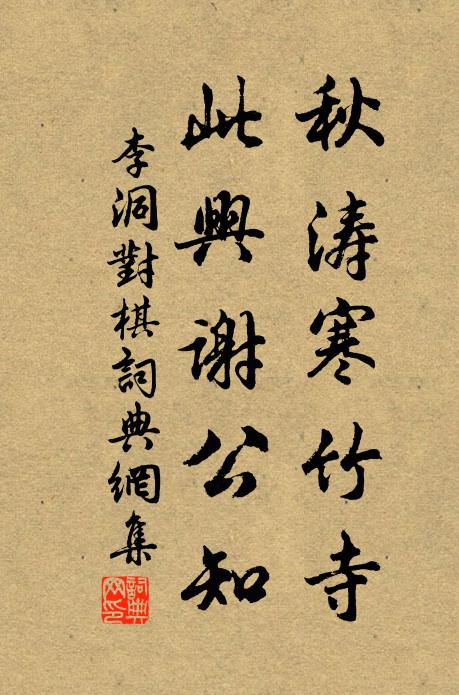 秋涛寒竹寺
此興謝公知
李洞對棋詞典網集
詞典网印